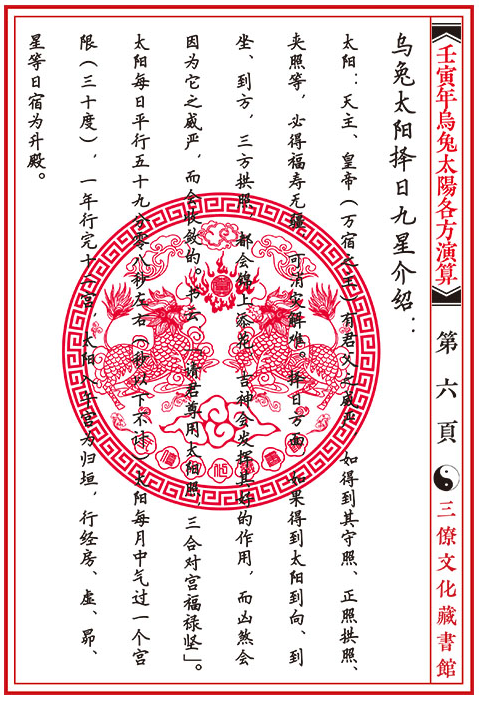 壬寅年烏兔太陽各方演算
第六頁
三僚文化藏書館
乌兔太阳择日九星介绍：
太阳：天主、皇帝（万宿之王）有君父之威严，如得到其守照、正照拱照、
夹照等，必得福寿无疆，可消灾解难。择日方面，如果得到太阳到向、到
坐、到方，三方拱照，都会锦上添花，吉神会发挥其好的作用，而凶煞会
因为它之威严，而会收敛的。书云：「请君尊用太阳照，三合对宫福禄坚」。
太阳每日平行五十九分零八秒左右（秒以下不计）太阳每月中气过一个宫
限（三十度），一年行完十二宫，太阳入午宫为归垣，行经房、虚、昴、
星等日宿为升殿。